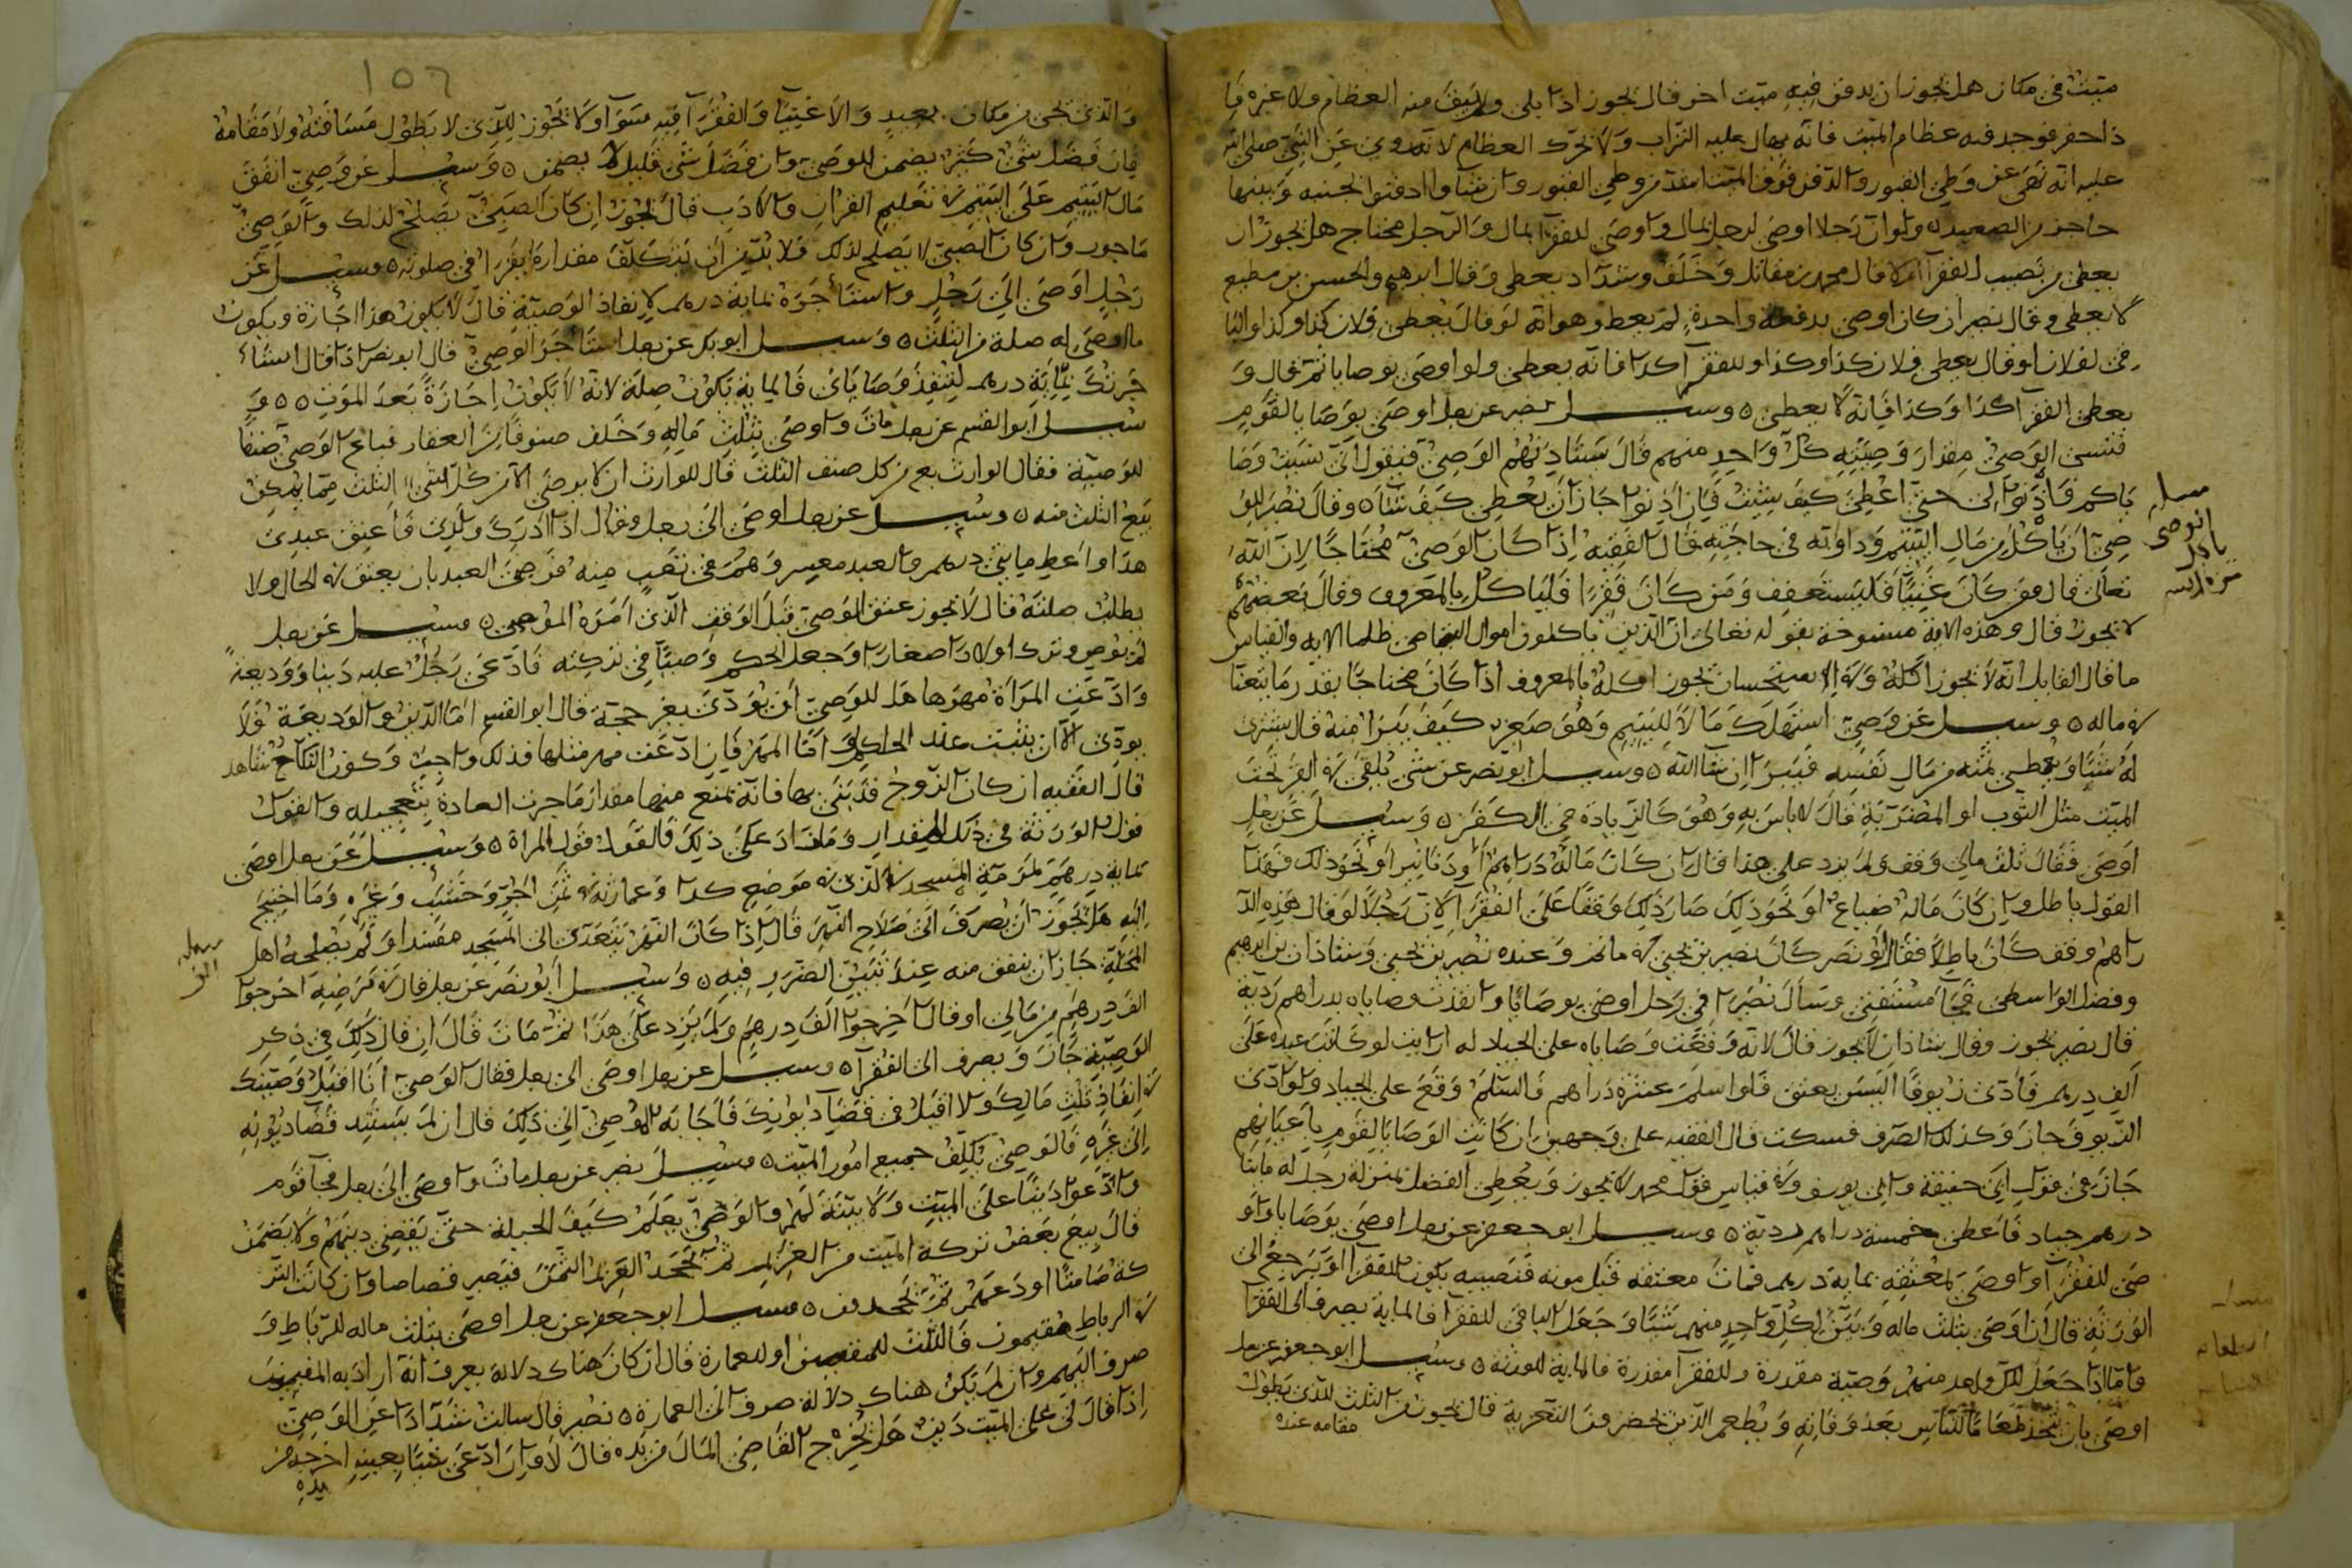 ميت في مكان هل يجوز ان يدفن فيه ميت اخر قال يجوز اذا بلى ولم يبق منه العظام ولا غيره فا
ذا حفر فوجد فيه عظام الميت فانه يهال عليه التراب ولا تحرك العظام لانه روي عن النبي صلى الله
عليه انه نهى عن وطي القبور والدفن فوق الميت اشد من وطي القبور وان شاوا دفنوا بجنبه وبينهما
حاجز من الصعيد ولو ان رجلا اوصى لرجل بمال واوصى للفقرا بمال والرجل محتاج هل يجوز ان
يعطى من نصيب الفقرا ام لا قال محمد بن مقاتل وخلف وشداد يعطى وقال ابرهيم والحسن بن مطيع
لا يعطى وقال نصير ان كان اوصى بدفعة واحدة لم يعط وهو انه لو قال يعطى فلان كذا وكذا والبا
قى لفلان او قال يعطى فلان كذا وكذا وللفقرا كذا فانه يعطى ولو اوصى بوصايا ثم قال و
يعطى الفقرا كذا وكذا فانه لا يعطى وسيل نصير عن رجل اوصى بوصايا لقوم
فنسى الوصي مقدار وصيته كل واحد منهم قال يستاذنهم الوصي فيقول اني نسيت وصا
ياكم فاذنوا لى حتى اعطى كيف شئت فان اذنوا جاز ان يعطى كيف شا وقال نصير للو
صي ان ياكل من مال اليتيم ودوابه في حاجته قال الفقيه اذا كان الوصي محتاجا لان الله
تعالى قال ومن كان غنيا فليستعفف ومن كان فقيرا فلياكل بالمعروف وقال بعضهم
لا يجوز قال وهذه الاية منسوخة بقوله تعالى ان الذين ياكلون اموال اليتامى ظلما الاية والقياس
ما قال القايل انه لا يجوز اكله وفي الاستحسان يجوز اكله بالمعروف اذا كان محتاجا بقدر ما يتعنا
في ماله وسيل عن وصي استهلك مالا لليتيم وهو صغير كيف يبرا منه قال يشترى
له شيا ويعطي ثمنه من مال نفسه فيبرا ان شا الله وسيل ابو نصر عن شى يلقى في القبر تحت
الميت مثل الثوب او المضربة قال لا باس به وهو كالزيادة في الكفن وسيل عن رجل
اوصى فقال ثلث مالي وقف ولم يزد على هذا قال ان كان ماله دراهم او دنانير او نحو ذلك فهذا
القول باطل وان كان ماله ضياع او نحو ذلك صار ذلك وقفا على الفقرا لان رجلا لو قال هذه الد
راهم وقف كان باطلا فقال ابو نصر كان نصير بن يحيى وعنده نصير بن يحيى وشاذان بن ابرهيم
وفضل الواسطى فجا مستفتى وسال نصيرا في رجل اوصى بوصايا وانفذت وصاياه بدراهم ردية
قال نصير يجوز وقال شاذان لا يجوز قال لانه وقعت وصاياه على الجياد له ارايت لو كاتب عبده على
الف درهم فادى زيوفا اليس يعتق فلو اسلم عشرة دراهم فالسلم وقع على الجياد ولو ادى
الزيوف جاز وكذلك الصرف فسكت قال الفقيه على وجهين ان كانت الوصايا لقوم باعيانهم
جاز في قول ابي حنيفة وابي يوسف وفي قياس قول محمد لا يجوز ويعطى الفضل بمنزلة رجل له مايتا
درهم جياد فاعطى خمسة دراهم ردية وسيل ابو جعفر عن رجل اوصى بوصايا واو
صى للفقرا واوصى لمعتقه بماية درهم فمات معتقه قبل موته فنصيبه يكون للفقرا او يرجع الى
الورثة قال ان اوصى بثلث ماله وبين لكل واحد منهم شيا وجعل الباقى للفقرا فالماية يصرف الى الفقرا
واما اذا جعل لكل واحد منهم وصية مقدرة وللفقرا مقدرة فالماية للورثة وسيل ابو جعفر عن رجل
اوصى بان يتخذ طعاما للناس بعد وفاته ويطعم الذين يحضرون التعزية قال يجوز من الثلث للذى يطول
مقامه عنده
مسلة
الوصي
ياكل
من مال اليتيم
والذى يجى من مكان بعيد والاغنيا والفقرا فيه سوا ولا يجوز للذى لا يطول مسافته ولا مقامه
فان فضل شى كثير يضمن الوصي وان فضل شى قليل لا يضمن وسيل عن وصي انفق
مال اليتيم على اليتيم في تعليم القران والادب قال يجوز ان كان الصبي يصلح لذلك والوصي
ماجور وان كان الصبي لا يصلح لذلك فلا بد من ان يتكلف مقدار ما يقرا في صلوته وسيل عن
رجل اوصى الى رجل واستاجره بماية درهم لانفاذ الوصية قال لا يكون هذا اجازة ويكون
ما اوصى له صلة من الثلث وسيل ابو بكر عن رجل استاجر الوصي قال ابو نصر اذا قال استا
جرتك بماية درهم لتنفذ وصاياى فالماية تكون صلة لانه لا يكون اجازة بعد الموت و
سيل ابو القسم عن رجل مات واوصى بثلث ماله وخلف صنوفا من العقار فباع الوصي صنفا
للوصية فقال الوارث بع من كل صنف الثلث قال للوارث ان لا يرضى الا من كل شي الثلث مما يمكن
بيع الثلث منه وسيل عن رجل اوصى الى رجل وقال اذا ادرك ولدى فاعتق عبدى
هذا واعط مايتى درهم والعبد معسر وهم في تعب منه فرضى العبد بان يعتق في الحال ولا
يطلب صلته قال لا يجوز عتق الوصي قبل الوقت الذى امره الموصي وسيل عن رجل
لم يوص وترك اولادا صغارا وجعل الحكم وصيا في تركته فادعى رجل عليه دينا ووديعة
وادعت المراة مهرها هل للوصي ان يودى بغير حجة قال ابو القسم اما الدين والوديعة فلا
يودى الا ان يثبت عند الحاكم واما المهر فان ادعت مهر مثلها فذلك واجب وكون النكاح شاهد
قال الفقيه ان كان الزوج قد بنى بها فانه يمنع منها مقدار ما جرت العادة بتعجيله والقول
قول الورثة في ذلك المقدار وما زاد على ذلك فالقول قول المراة وسيل عن رجل اوصى
بماية درهم لمرمة المسجد الذى في موضع كذا وعمارته في ثمن اجر وخشب وغيره وما احتيج
اليه هل يجوز ان يصرف الى صلاح النهر قال اذا كان النهر يتعدى الى المسجد مفسدا ولم يصلحه اهل
المحلة جاز ان ينفق منه عند تبيين الضرر فيه وسيل ابو نصر عن رجل قال في مرضه اخرجوا
الف درهم من مالي او قال اخرجوا الف درهم ولم يزد على هذا ثم مات قال ان قال ذلك في ذكر
الوصية جاز ويصرف الى الفقرا وسيل عن رجل اوصى الى رجل فقال الوصي انا اقبل وصيتك
في انفاذ ثلث مالك ولا اقبل في قضا ديونك فاجابه الموصي الى ذلك قال ان لم يسند قضا ديونه
الى غيره فالوصي يكلف جميع امور الميت وسيل نصير عن رجل مات واوصى الى رجل فجا قوم
وادعوا دينا على الميت ولا بينة لهم والوصي يعلم كيف الحيلة حتى يقضى دينهم ولا يضمن
قال يبيع بعض تركة الميت من الغريم ثم يجحد الغريم الثمن فيصير قصاصا وان كانت التر
كة صامتا اودعهم ثم يجحدون وسيل ابو جعفر عن رجل اوصى بثلث ماله للرباط و
في الرباط مقيمون فالثلث للمقيمين او للعمارة قال ان كان هناك دلالة يعرف انه اراد به المقيمين
صرف اليهم وان لم يكن هناك دلالة صرف الى العمارة نصير قال سالت شدادا عن الوصي
اذا قال لى على الميت دين هل يخرج القاضي المال من يده قال لا وان ادعى شيا بعينه اخرجه من
يده